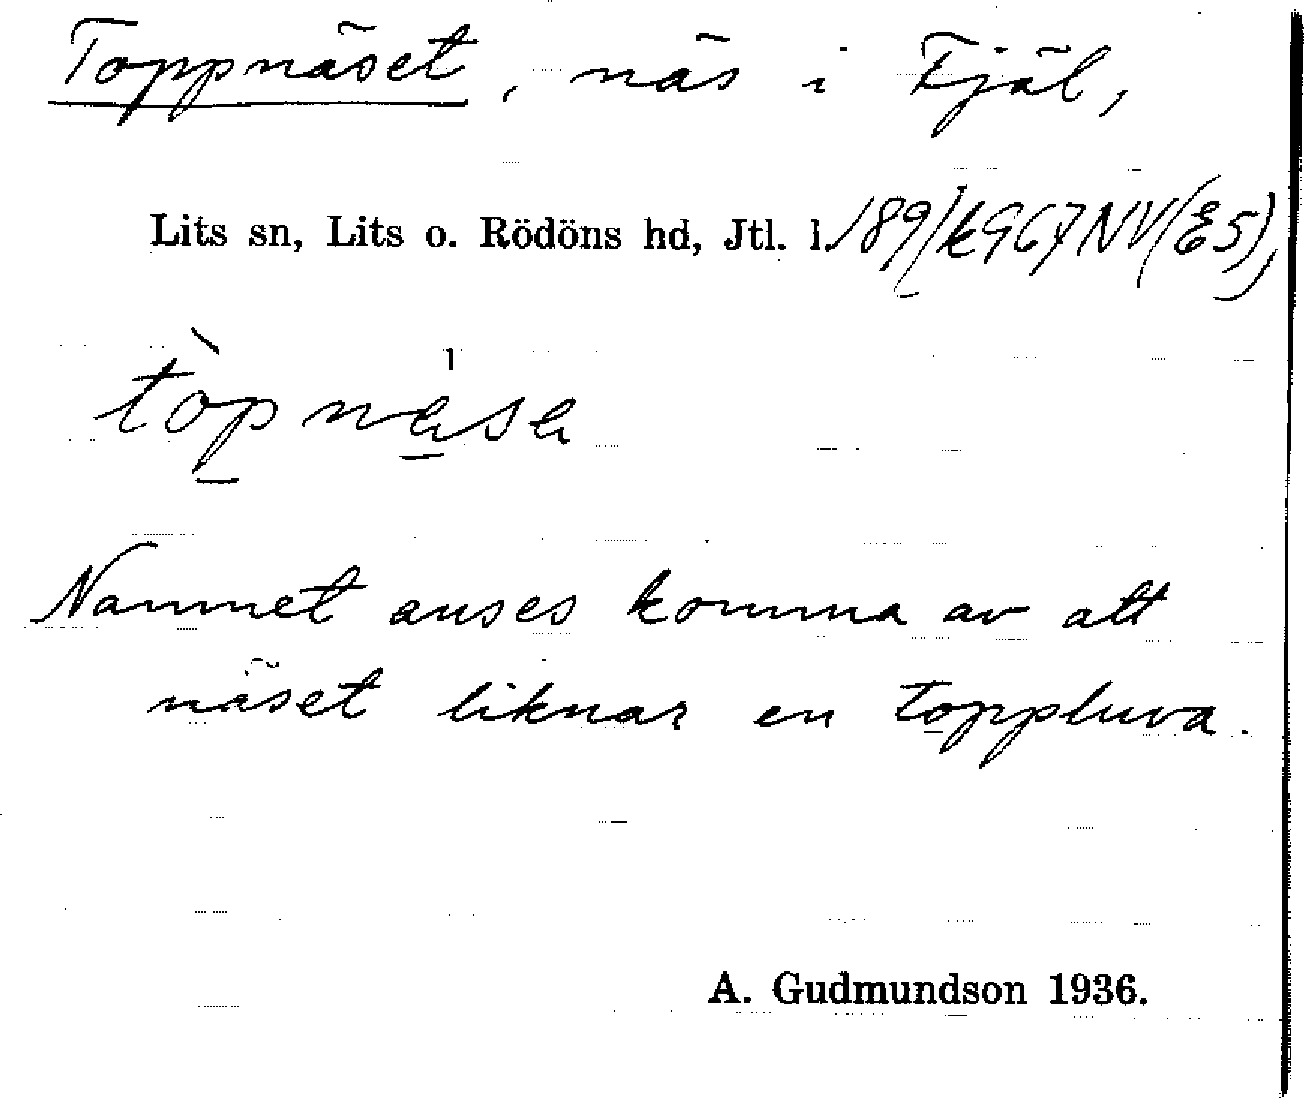 Toppnäset, näs i Fjäl,
Lits sn, Lits o. Rödöns hd, Jtl. l. 189/k967NV(E5),
Namnet anses komma av att
näset liknar en toppluva.
A. Gudmundson 1936.